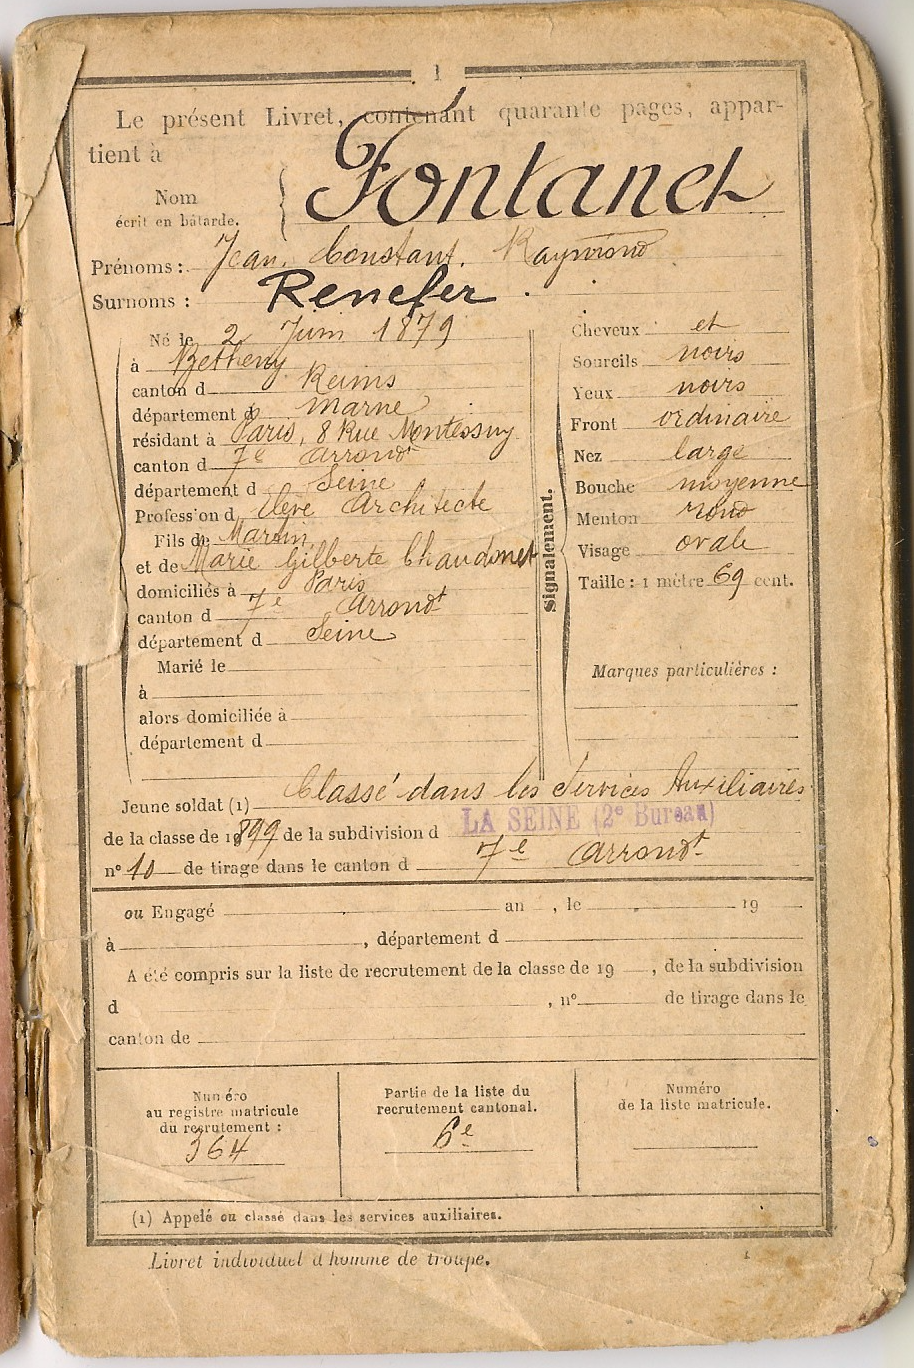 1
Le présent Livret, contenant quarante pages, appar-
tient à
Nom
écrit en bâtarde.
Fontanet
Prénoms : Jean, Constant, Raymond
Surnoms : Renefer
Né le 2 Juin 1879
à Betheny
canton d Reims
département d Marne
résidant à Paris, 8 Rue Montessuy
canton d 7e Arrondt
département d Seine
Profession d Elève Architecte
Fils de Martin
et de Marie Gilberte Chaudonet
domiciliés à Paris
canton d 7e Arrondt
département d Seine
Marié le
à
alors domiciliée à
département d
Signalement.
Cheveux et
Sourcils noirs
Yeux noirs
Front ordinaire
Nez large
Bouche moyenne
Menton rond
Visage ovale
Taille : 1 mètre 69 cent.
Marques particulières :
Jeune soldat (1) Classé dans les Services Auxiliaires
de la classe de 1899 de la subdivision d LA SEINE (2e Bureau)
n° 10 de tirage dans le canton d 7e Arrondt
ou Engagé an , le 19
à , département d
A été compris sur la liste de recrutement de la classe de 19 , de la subdivision
d , n° de tirage dans le
canton de
Numéro
au registre matricule
du recrutement :
364
Partie de la liste du
recrutement cantonal.
6e
Numéro
de la liste matricule.
(1) Appelé ou classé dans les services auxiliaires.
Livret individuel d'homme de troupe. 1